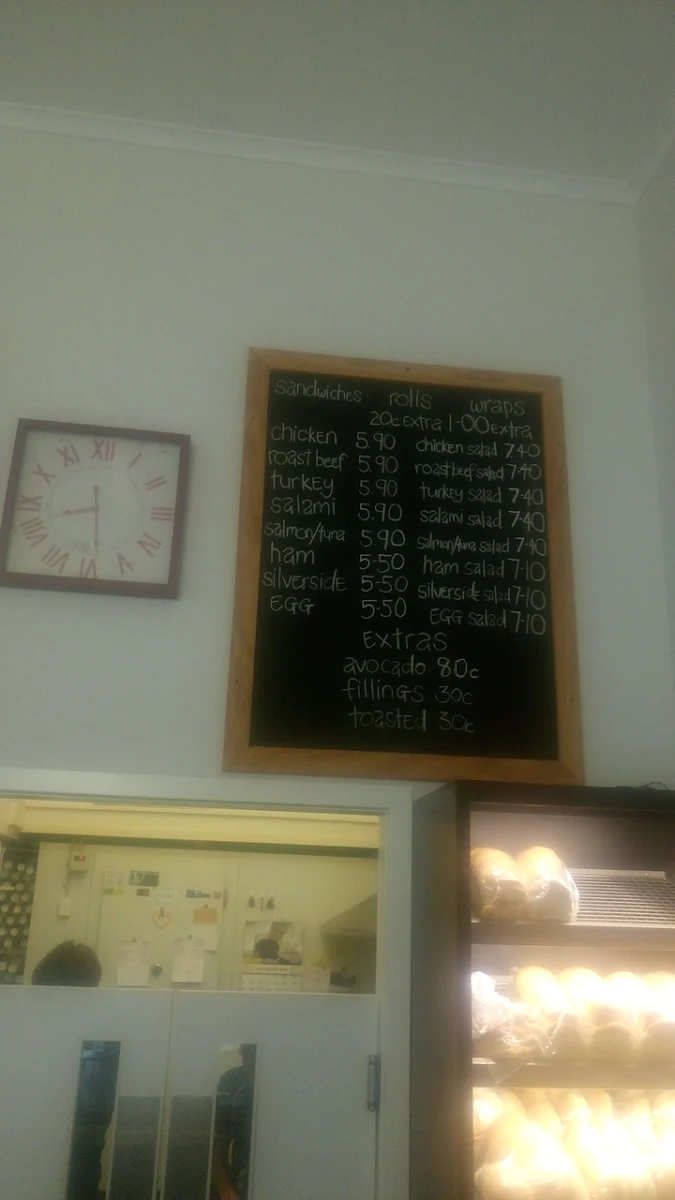 sandwiches rolls wraps
20c Extra 1-00 Extra
chicken 5.90 chicken salad 7.40
roast beef 5.90 roast beef salad 7.40
turkey 5.90 turkey salad 7.40
salami 5.90 salami salad 7.40
salmon/tuna 5.90 salmon/tuna salad 7.40
ham 5-50 ham salad 7-10
silverside 5-50 silverside salad 7-10
EGG 5-50 EGG salad 7-10
Extras
avocado 80c
fillings 30c
toasted 30c
XII
I
II
III
IV
V
VI
VII
VIII
IX
X
XI